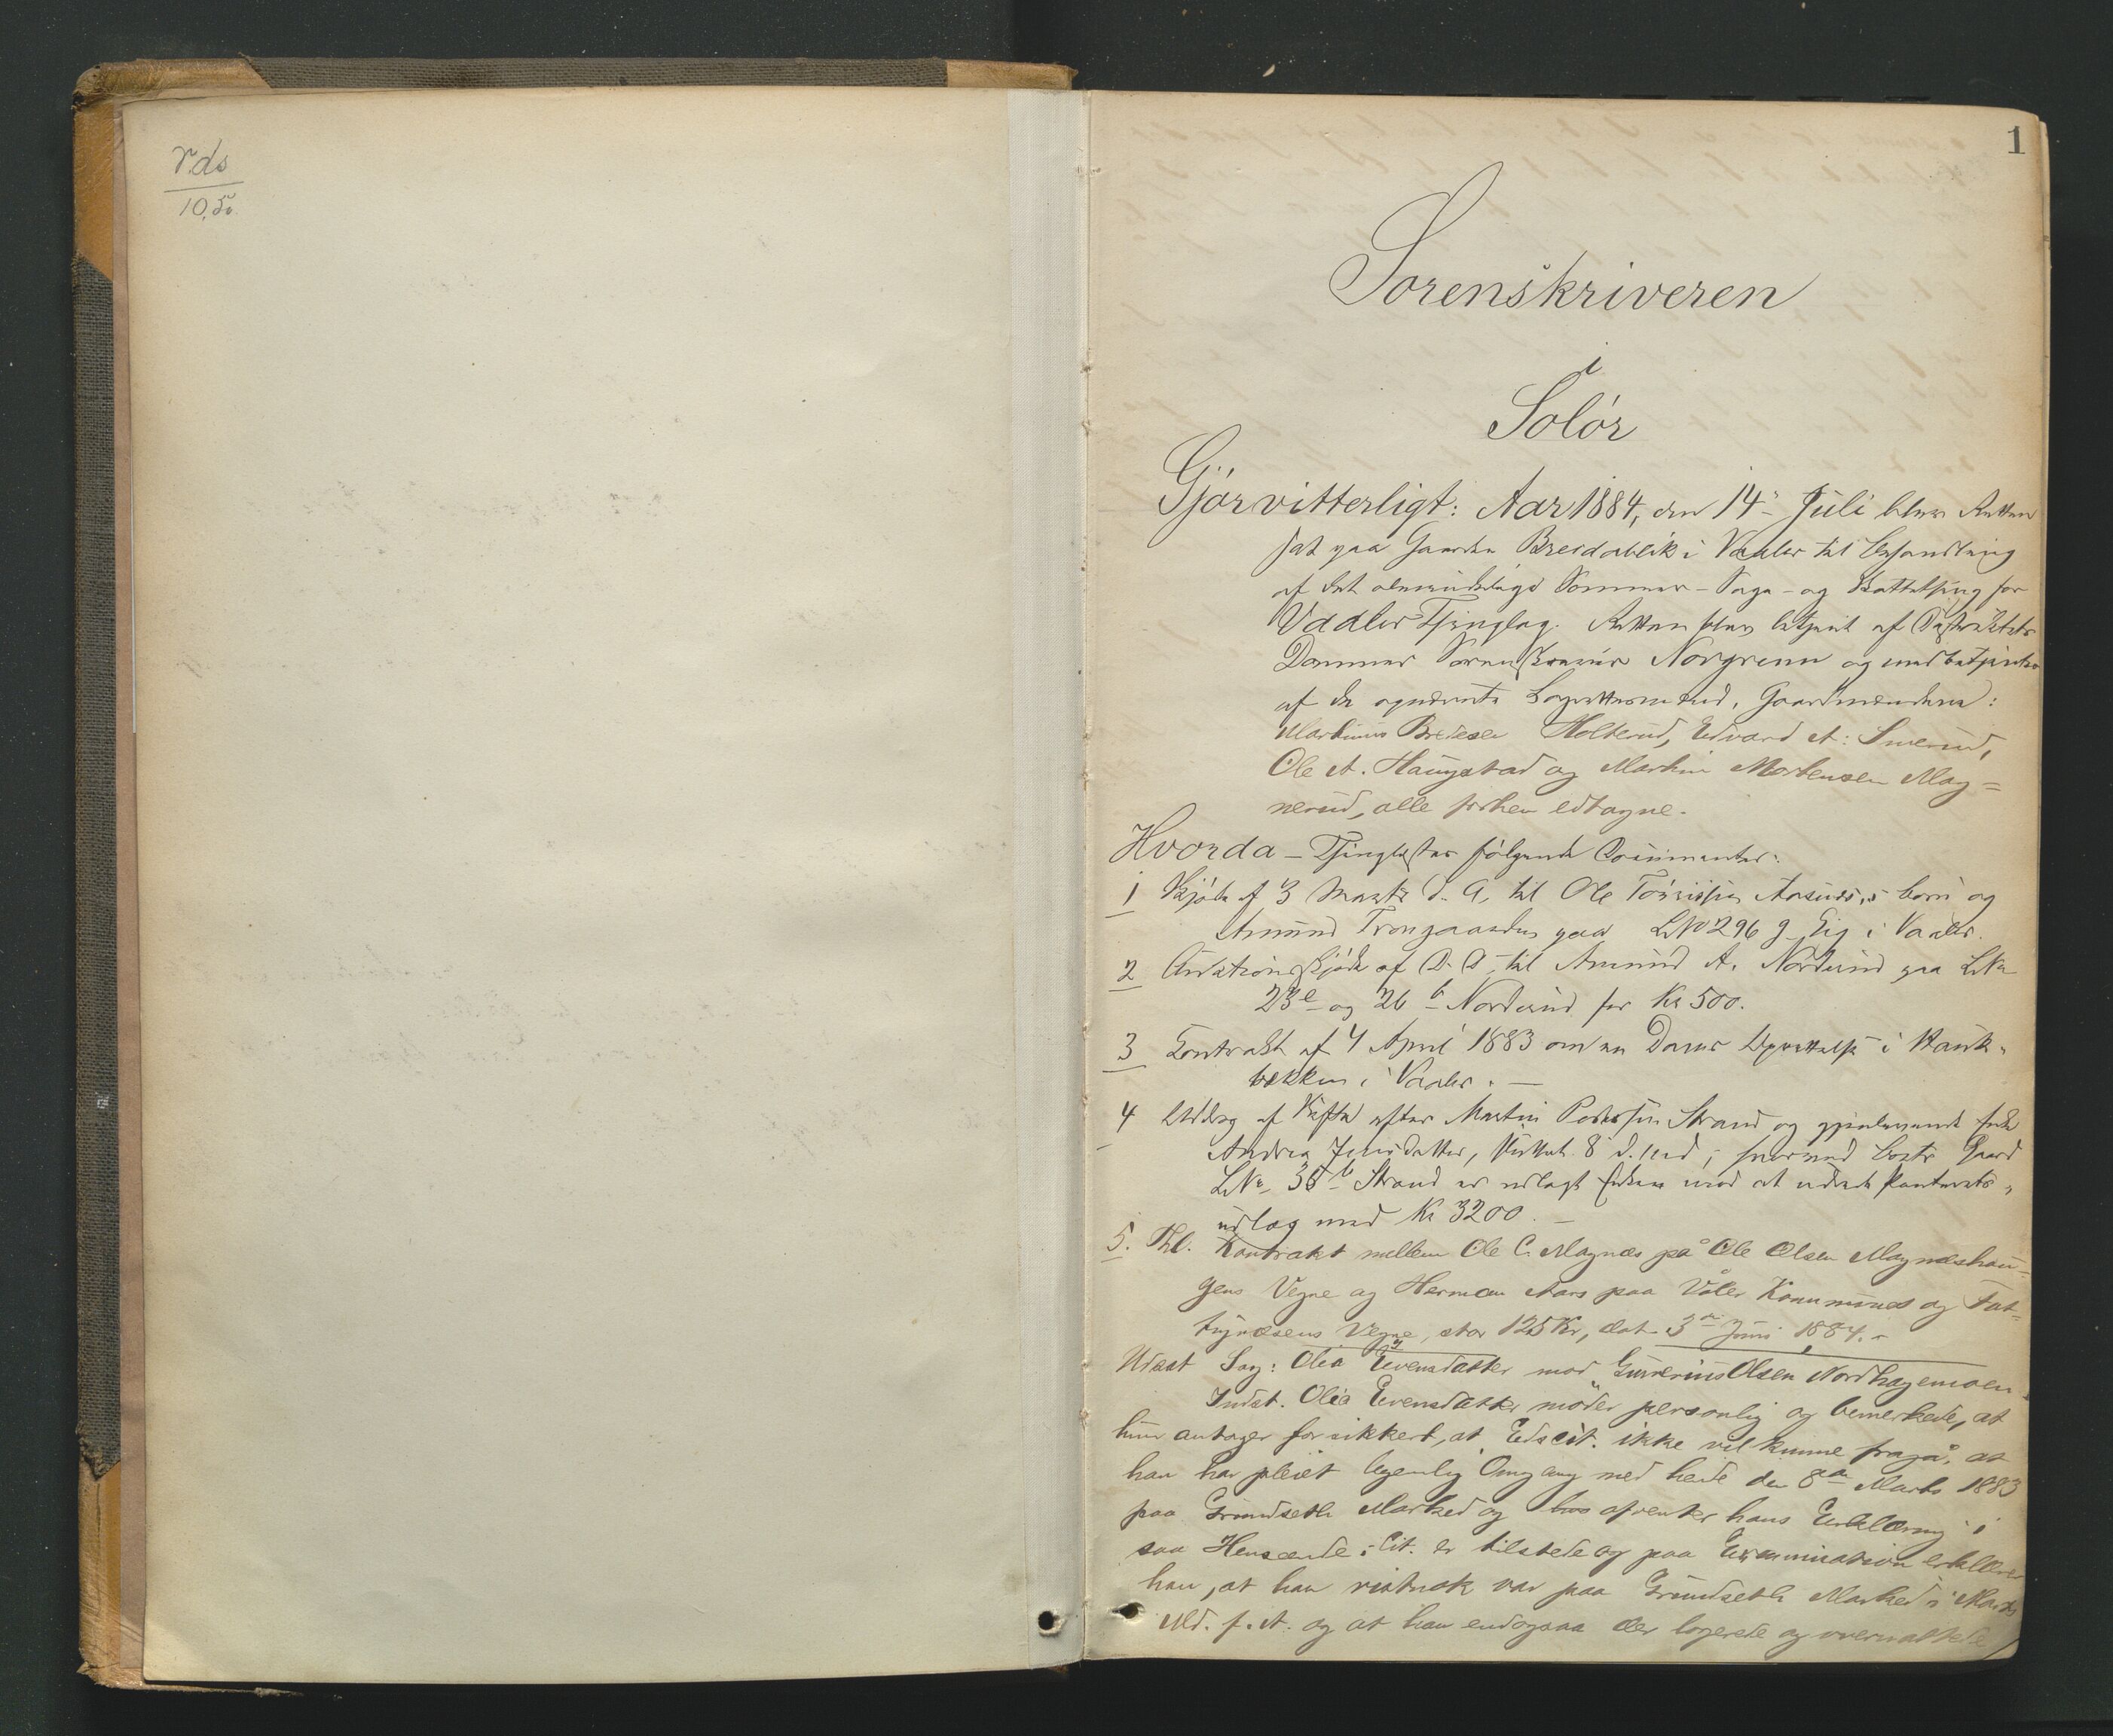 r.ds
10,50
1
Sorenskriveren
i
Solör
Gjör vitterligt: Aar 1884, den 14de Juli blev Retten
sat paa Gaarden Breidablik i Vaaler til Behandling
af det almindelige Sommer-Sage- og Skattething for
Vaaler Thinglag. Retten blev betjent af Distriktets
Dommer Sorenskriver Norgrenn og medbetjentes
af de opnævnte Lagrettesmænd, Gaardmændene:
Martinus Bredesen Holterud, Edvard A. Snerud,
Ole A. Haugstad og Martin Mortensen Mag=
nerud, alle forhen edtagne.
Hvorda - Thinglæstes fölgende Documenter:
1 Skjöde af 3 Marts d. A. til Ole og
Amund Trongaarden paa LNo 296 g Eig i Vaaler.
2 Auktionsskjöde af D. D. til Amund A. Norderud paa LNo
23e og 26b Norderud for Kr 500.
3 Kontrakt af 4 April 1883 om en Dams Oprettelse i
bækken i Vaaler. -
4 Udlæg af Skifte efter Martin Pedersen Strand og gjenlevende Enke
Andrea Jensdatter, sluttet 8 d. Md., hvorved Boets Gaard
LNo 36b Strand er udlagt Enken mod at udrede
udlæg med Kr 3200. -
5. Thl. Kontrakt mellem Ole C. Magnæs på Ole Olsen Magnæshau=
gens Vegne og Herman Aars paa Våler Kommunes og Fat=
tigvæsens Vegne, stor 125 Kr, dat. 3die Juni 1884. -
Udsat Sag: Olea Evensdatter mod Gunerius Olsen Nordhagemoen.
Indst. Olea Evensdatter möder personlig og bemerkede, at
hun antager for sikkert, at Edscit. ikke vil kunne fragå, at
han har pleiet legemlig Omgang med hende den 8de Marts 1883
paa Grundseth Marked og afventer hans Erklæring i
saa Henseende: Cit. er tilstede og paa Examination erklærer
han, at han vistnok var paa Grundseth Marked i Marts
Md. f. A. og at han endogsaa der logerede og overnattede